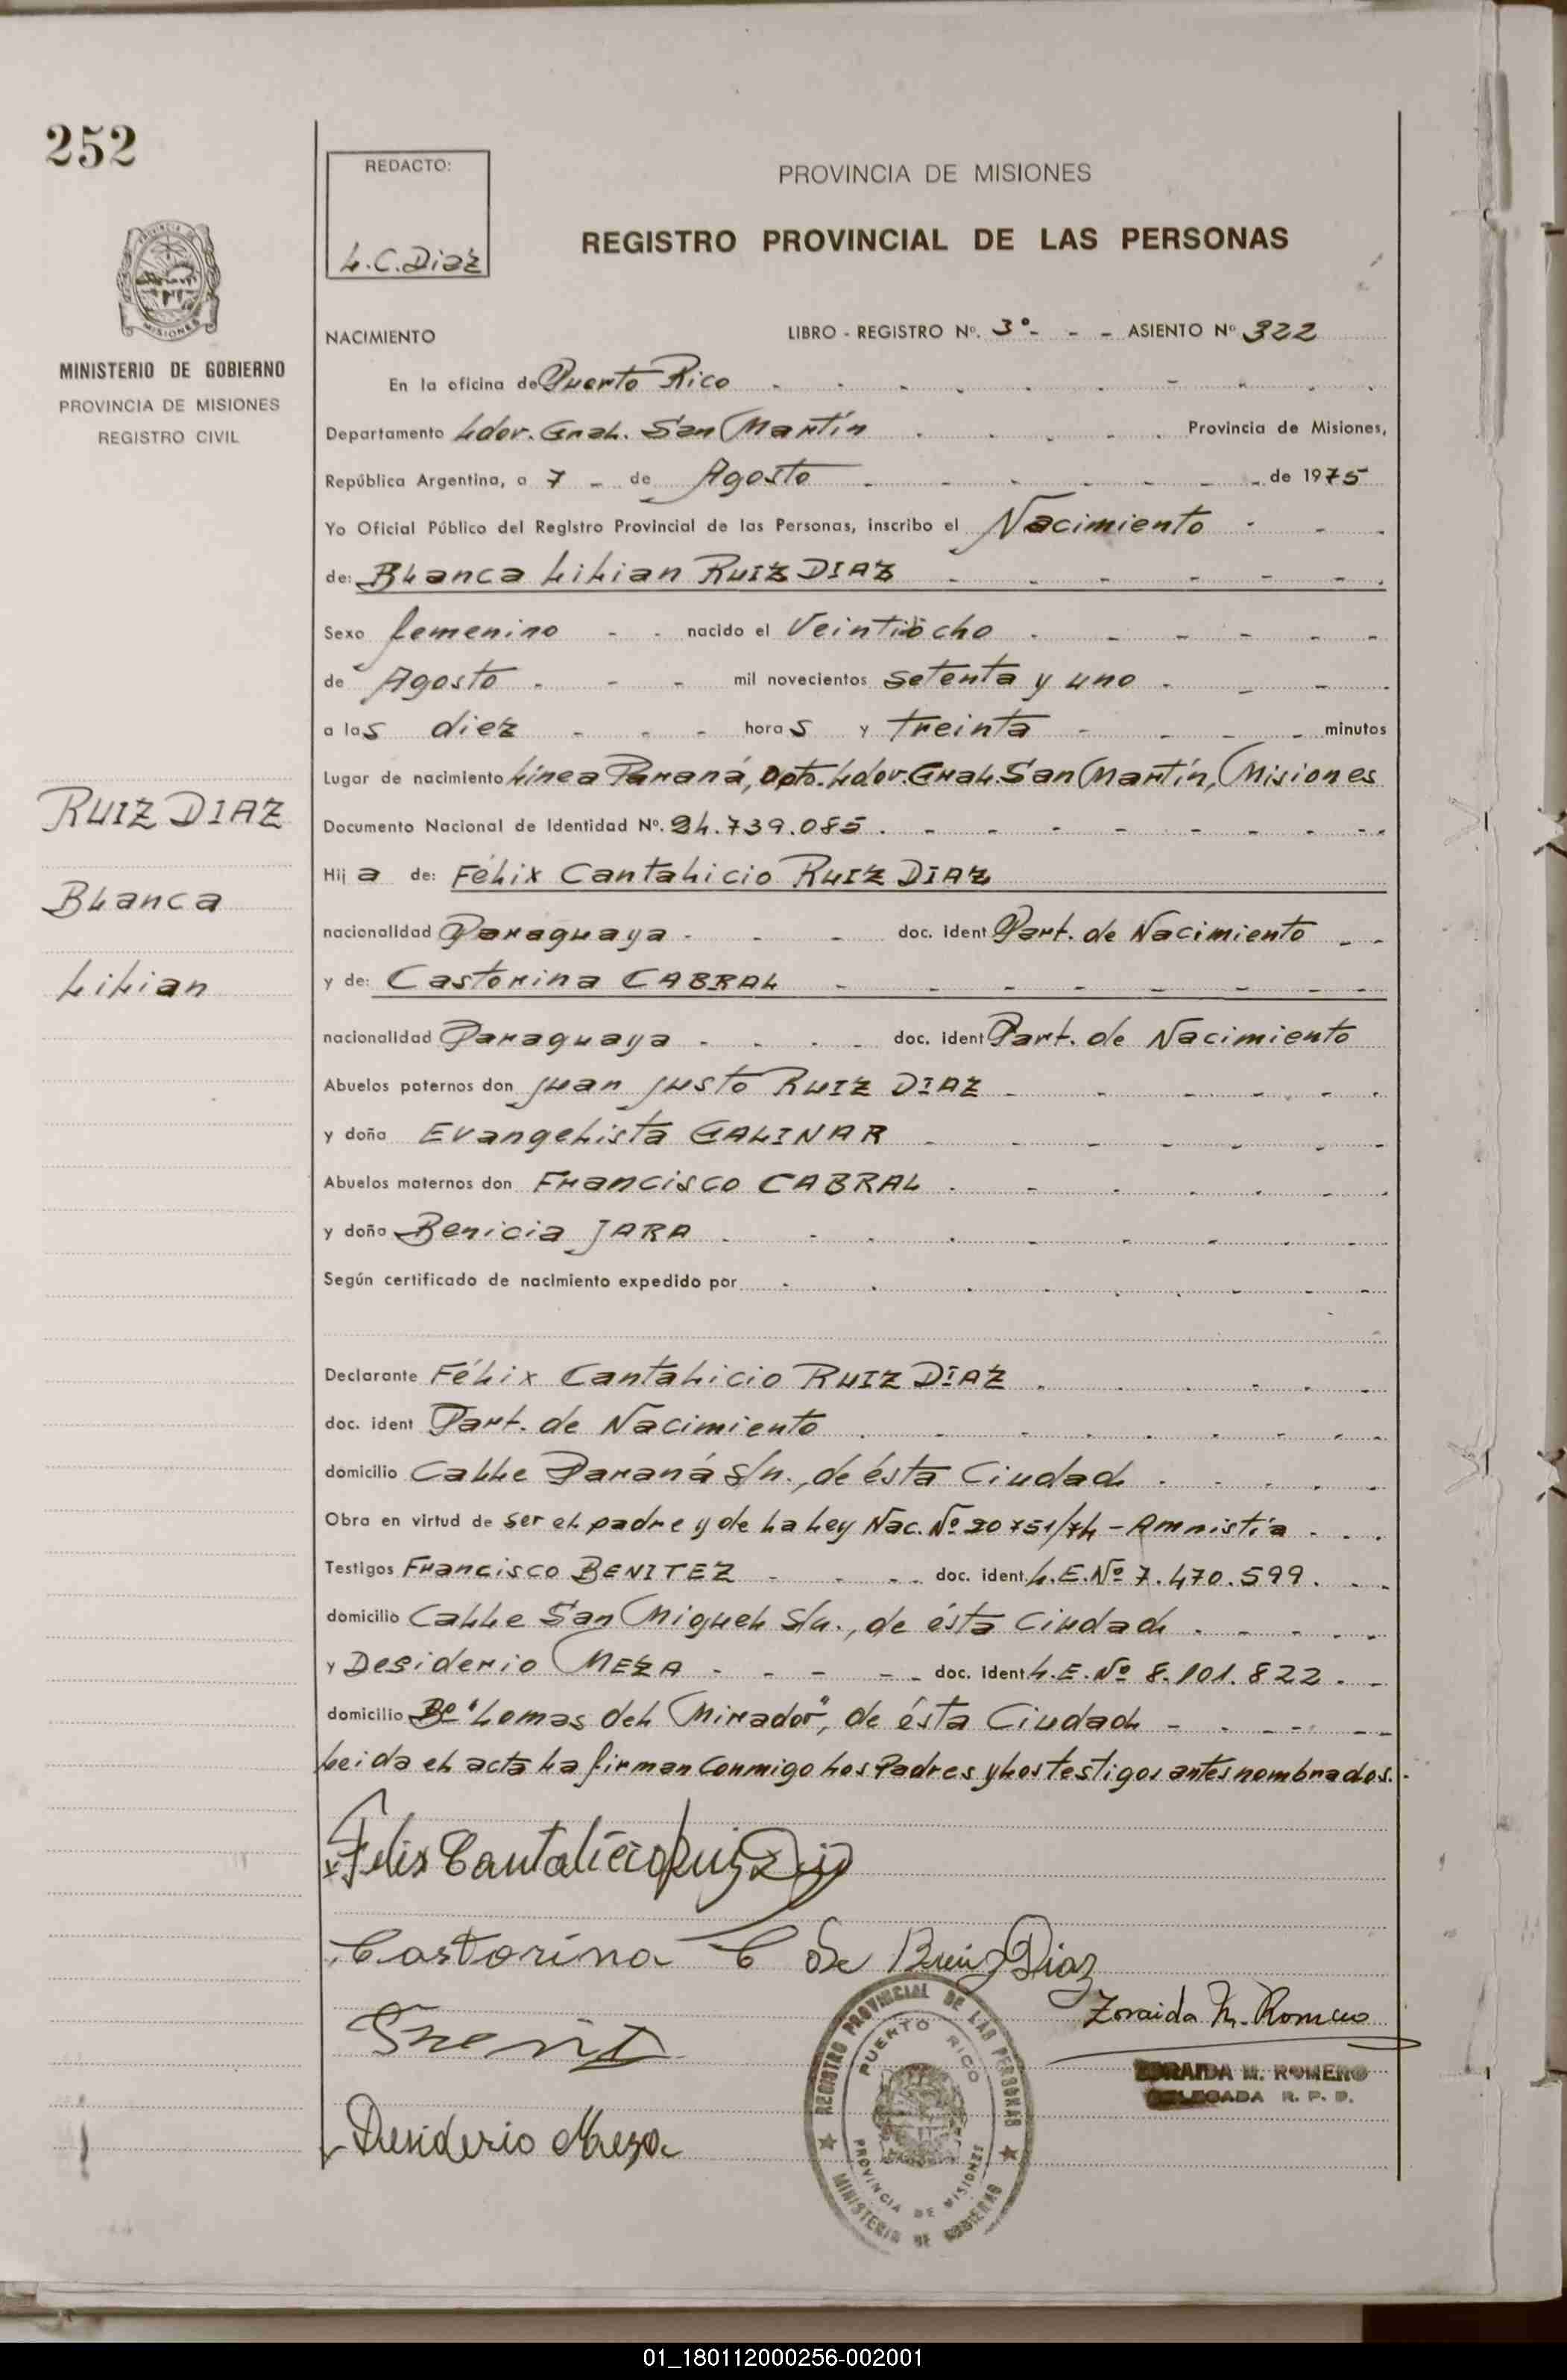 252
REDACTO:
L.C.Diaz
PROVINCIA DE MISIONES
REGISTRO PROVINCIAL DE LAS PERSONAS
MISIONES
MINISTERIO DE GOBIERNO
PROVINCIA DE MISIONES
REGISTRO CIVIL
NACIMIENTO LIBRO - REGISTRO Nº. 3º - - - ASIENTO Nº 322
En la oficina de Puerto Rico
Departamento Ldor. Gral. San Martín Provincia de Misiones,
República Argentina, a 7 - de Agosto de 1975
Yo Oficial Público del Registro Provincial de las Personas, inscribo el Nacimiento
de: Blanca Lilian RUIZ DIAZ
Sexo femenino nacido el Veintiocho
de Agosto mil novecientos setenta y uno
a las diez horas y treinta minutos
Lugar de nacimiento Línea Paraná, Dpto. Ldor. Gral. San Martín, Misiones
Documento Nacional de Identidad Nº. 24.739.085.
Hija de: Félix Cantalicio RUIZ DIAZ
nacionalidad Paraguaya doc. ident Part. de Nacimiento
y de: Castorina CABRAL
nacionalidad Paraguaya doc. ident Part. de Nacimiento
Abuelos paternos don Juan Justo RUIZ DIAZ
y doña Evangelista GALINAR
Abuelos maternos don Francisco CABRAL
y doña Benicia JARA
Según certificado de nacimiento expedido por
Declarante Félix Cantalicio RUIZ DIAZ
doc. ident Part. de Nacimiento
domicilio Calle Paraná s/n., de ésta Ciudad
Obra en virtud de ser el padre y de la Ley Nac. Nº 20751/74 - Amnistía
Testigos Francisco BENITEZ doc. ident. L.E. Nº 7.470.599.
domicilio Calle San Miguel s/n., de ésta Ciudad
y Desiderio MEZA doc. ident L.E. Nº 8.101.822
domicilio Bº "Lomas del Mirador", de ésta Ciudad
Leida el acta la firman conmigo los Padres y los testigos antes nombrados.
RUIZ DIAZ
Blanca
Lilian
Felix Cantalicio Ruiz Diaz
Castorina C de Ruiz Diaz
Zoraida M. Romero
ZORAIDA M. ROMERO
DELEGADA R. P. P.
Desiderio Meza
REGISTRO PROVINCIAL DE LAS PERSONAS
PUERTO RICO
PROVINCIA DE MISIONES
MINISTERIO DE GOBIERNO
01_180112000256-002001